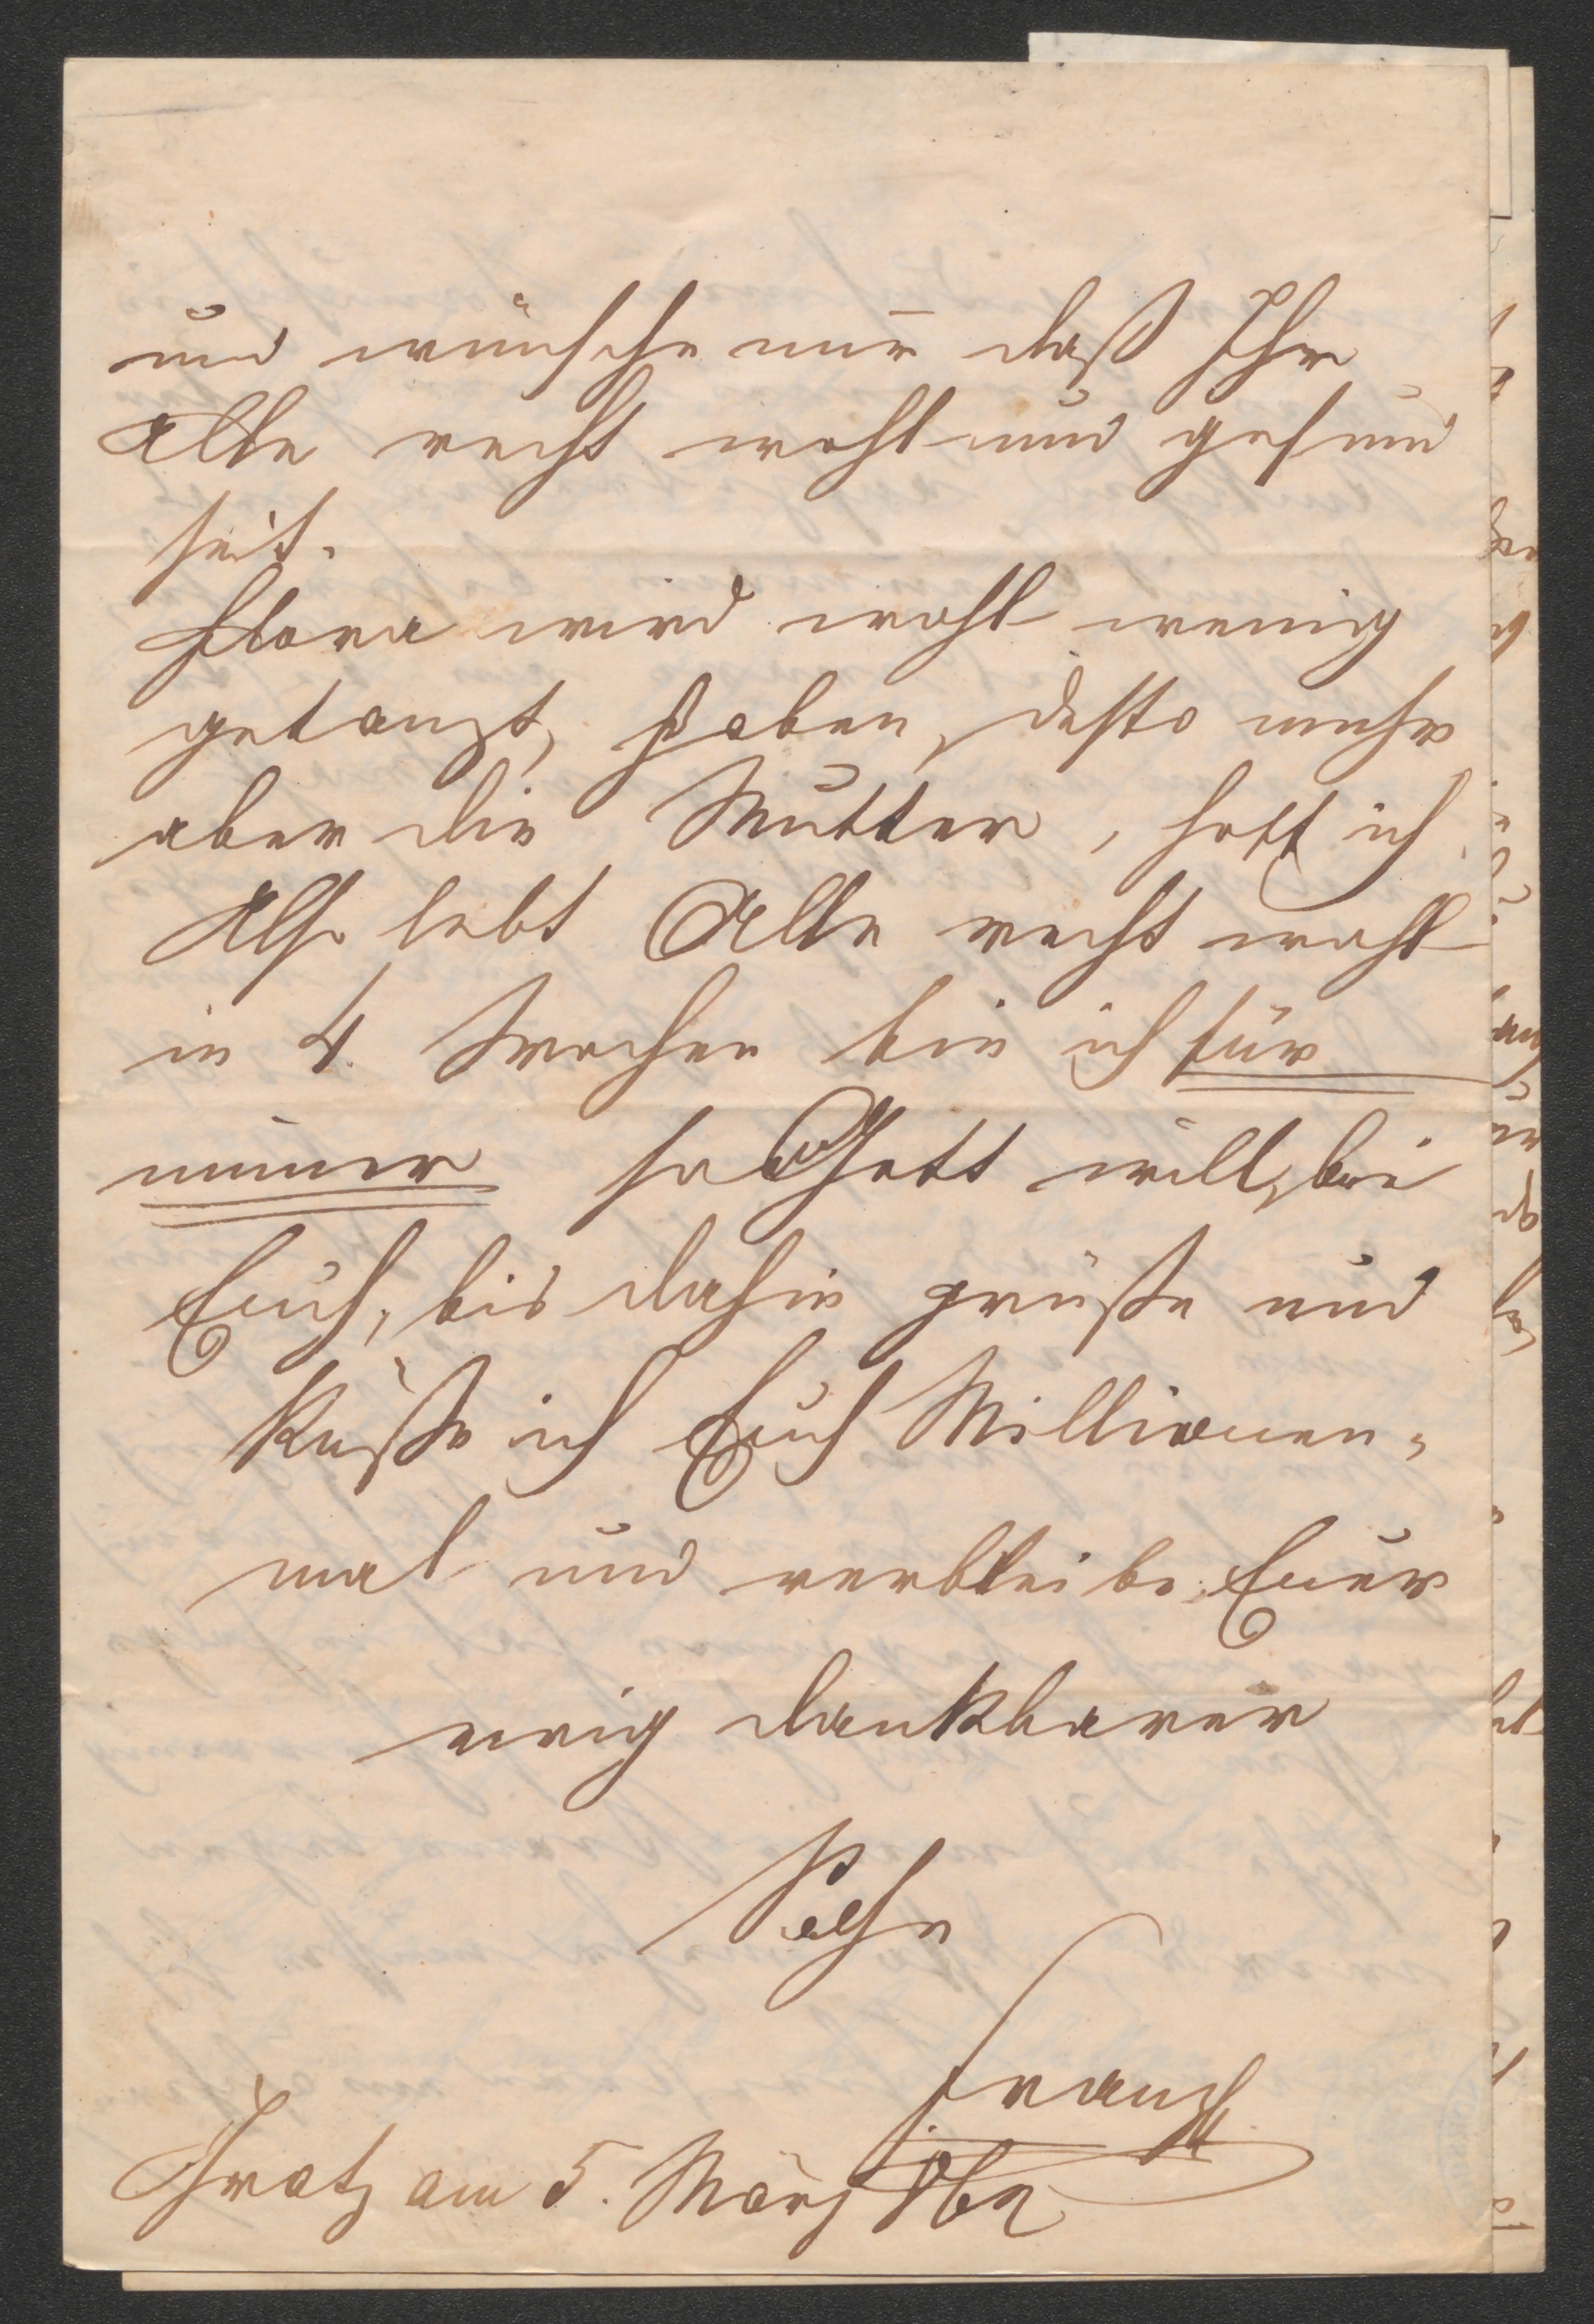 und wünsche nur daß Ihr
Alle recht wohl und gesund
seit.
Flora wird wohl wenig
getanzt, haben, desto mehr
aber die Mutter, hoff ich
Also lebt Alle recht wohl
in 4. Wochen bin ich für
immer so Gott will, bei
Euch, bis dahin grüße und
Küße ich Euch Millionen-
mal und verbleibe Euer
ewig dankbarer
Sohn
Franz
Gratz am 5. März